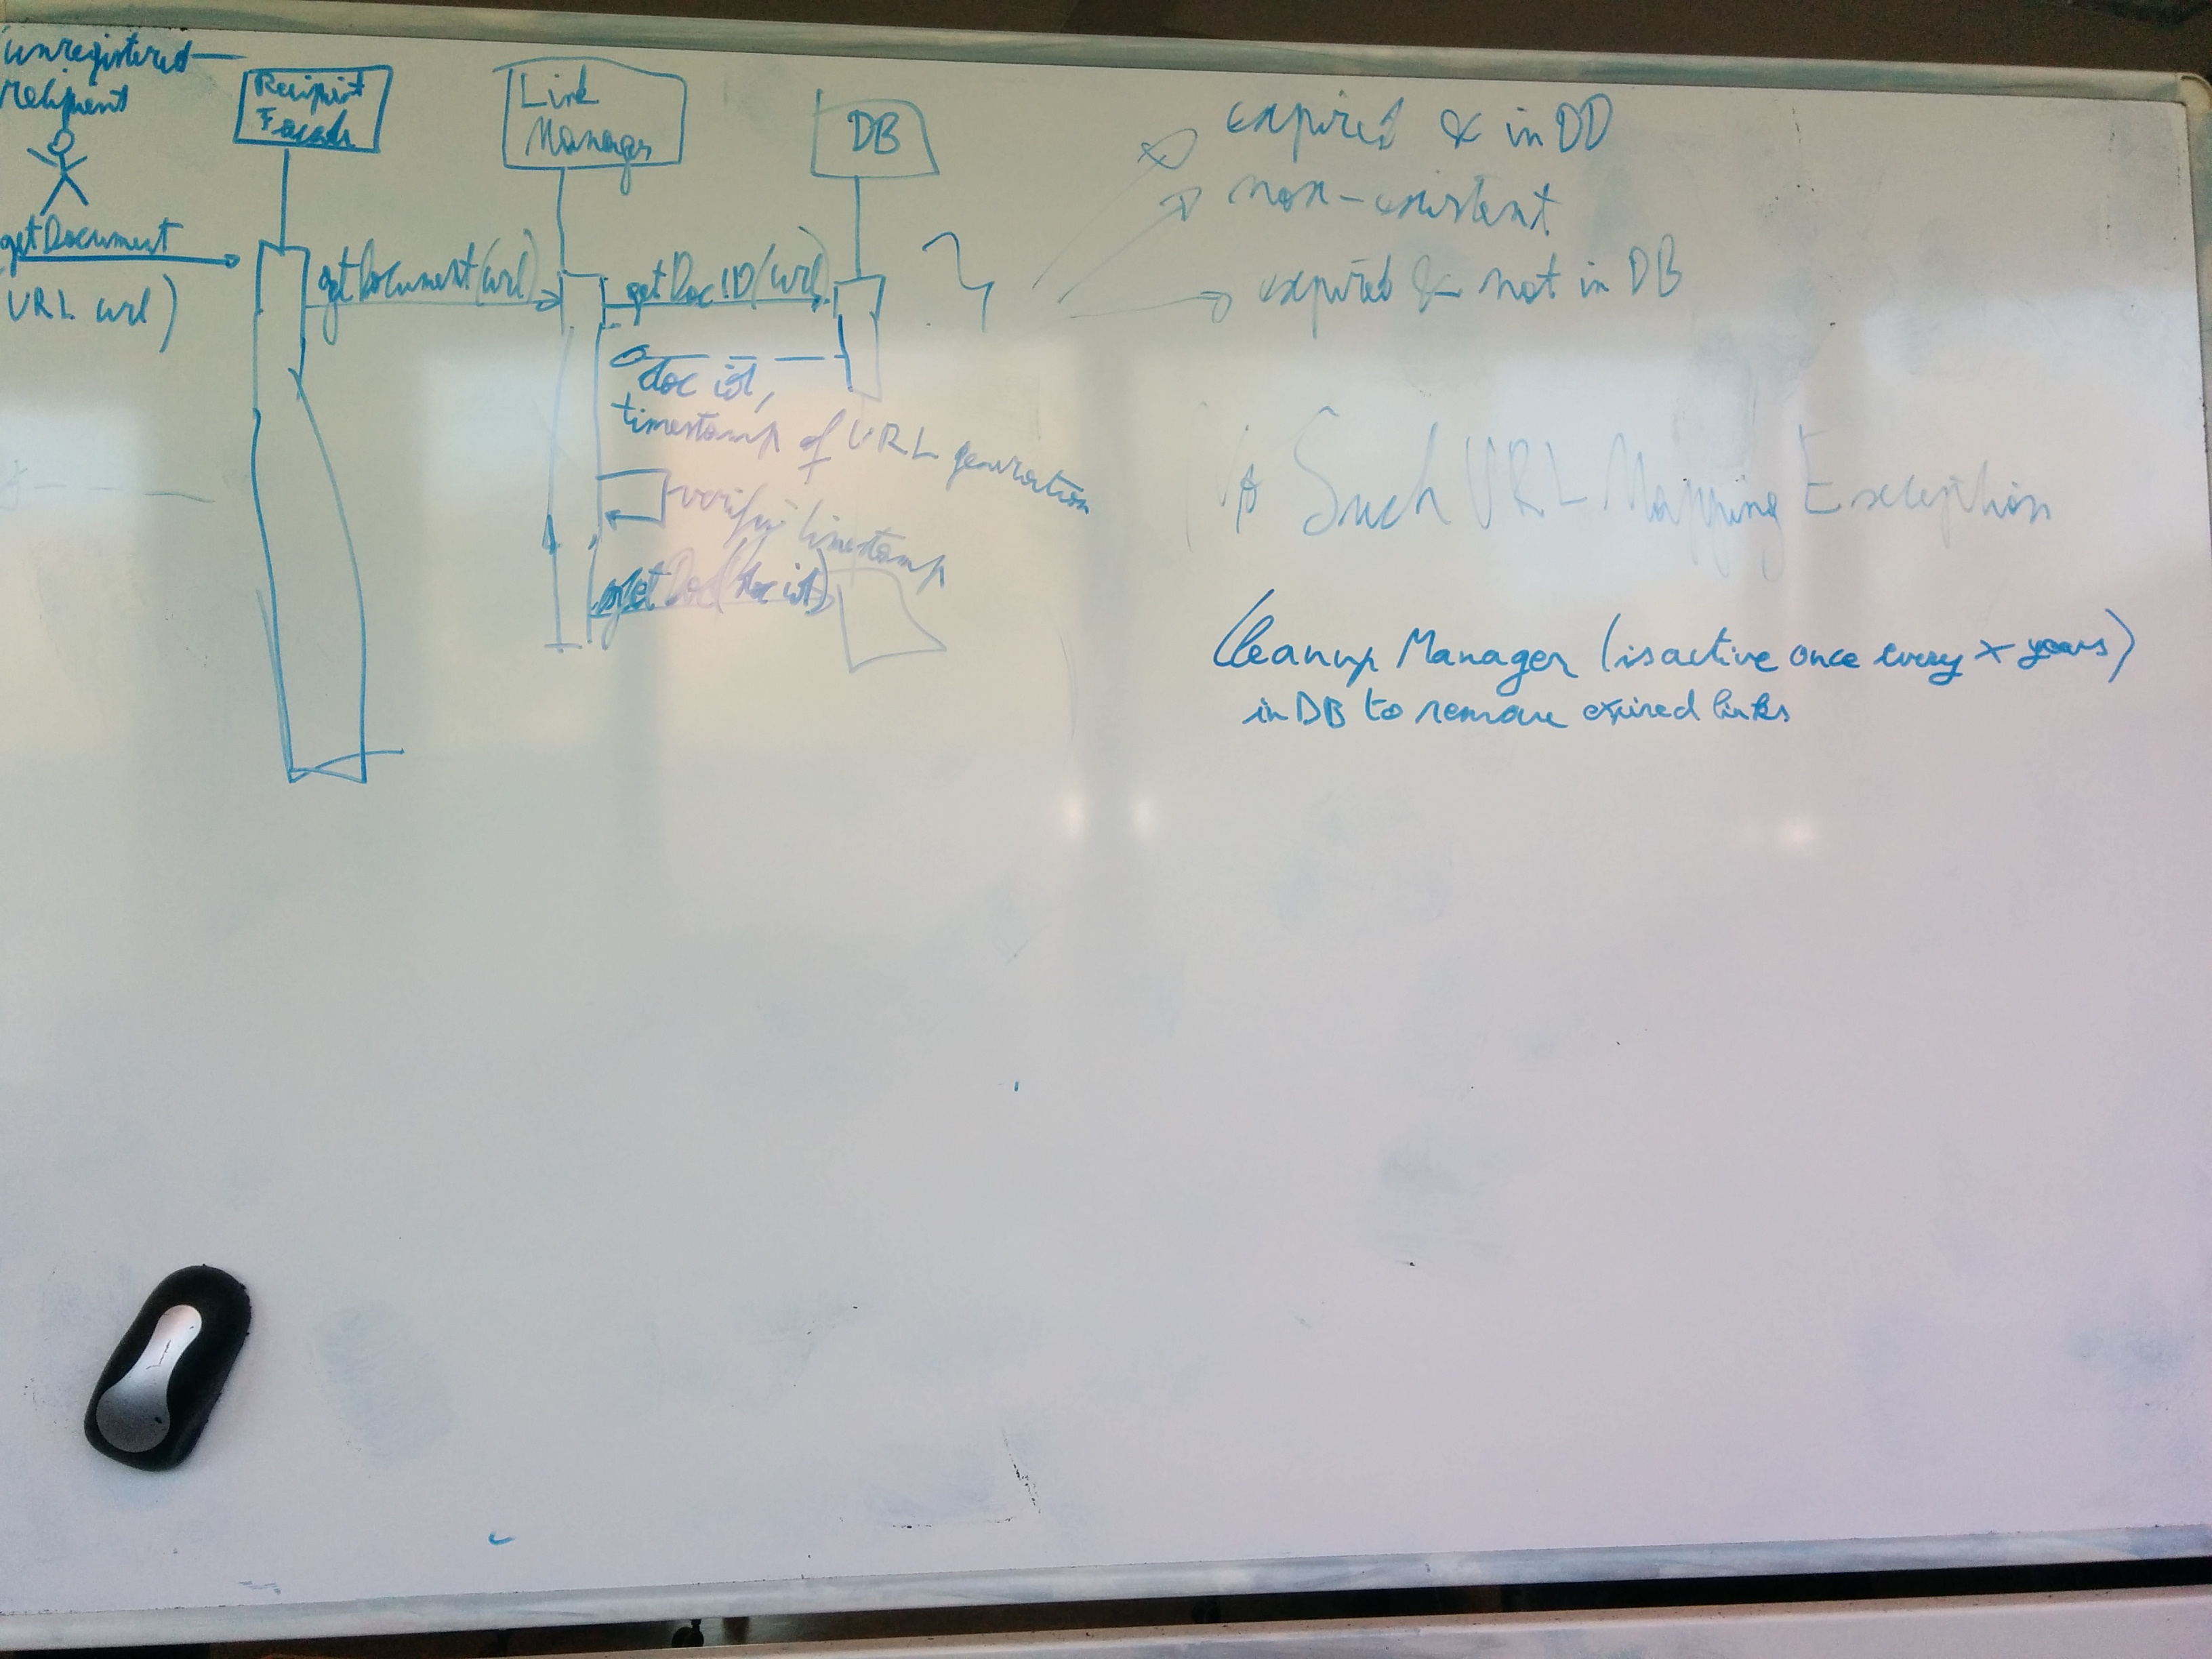 unregistered
recipient
Recipient
Facade
Link
Manager
DB
getDocument
URL url)
getDocument(url)
getDocID(url)
doc id,
timestamp of URL generation
verify timestamp
getDoc(doc id)
expired & in DB
non-existent
expired & not in DB
No Such URL Mapping Exception
Cleanup Manager (is active once every x years)
in DB to remove expired links